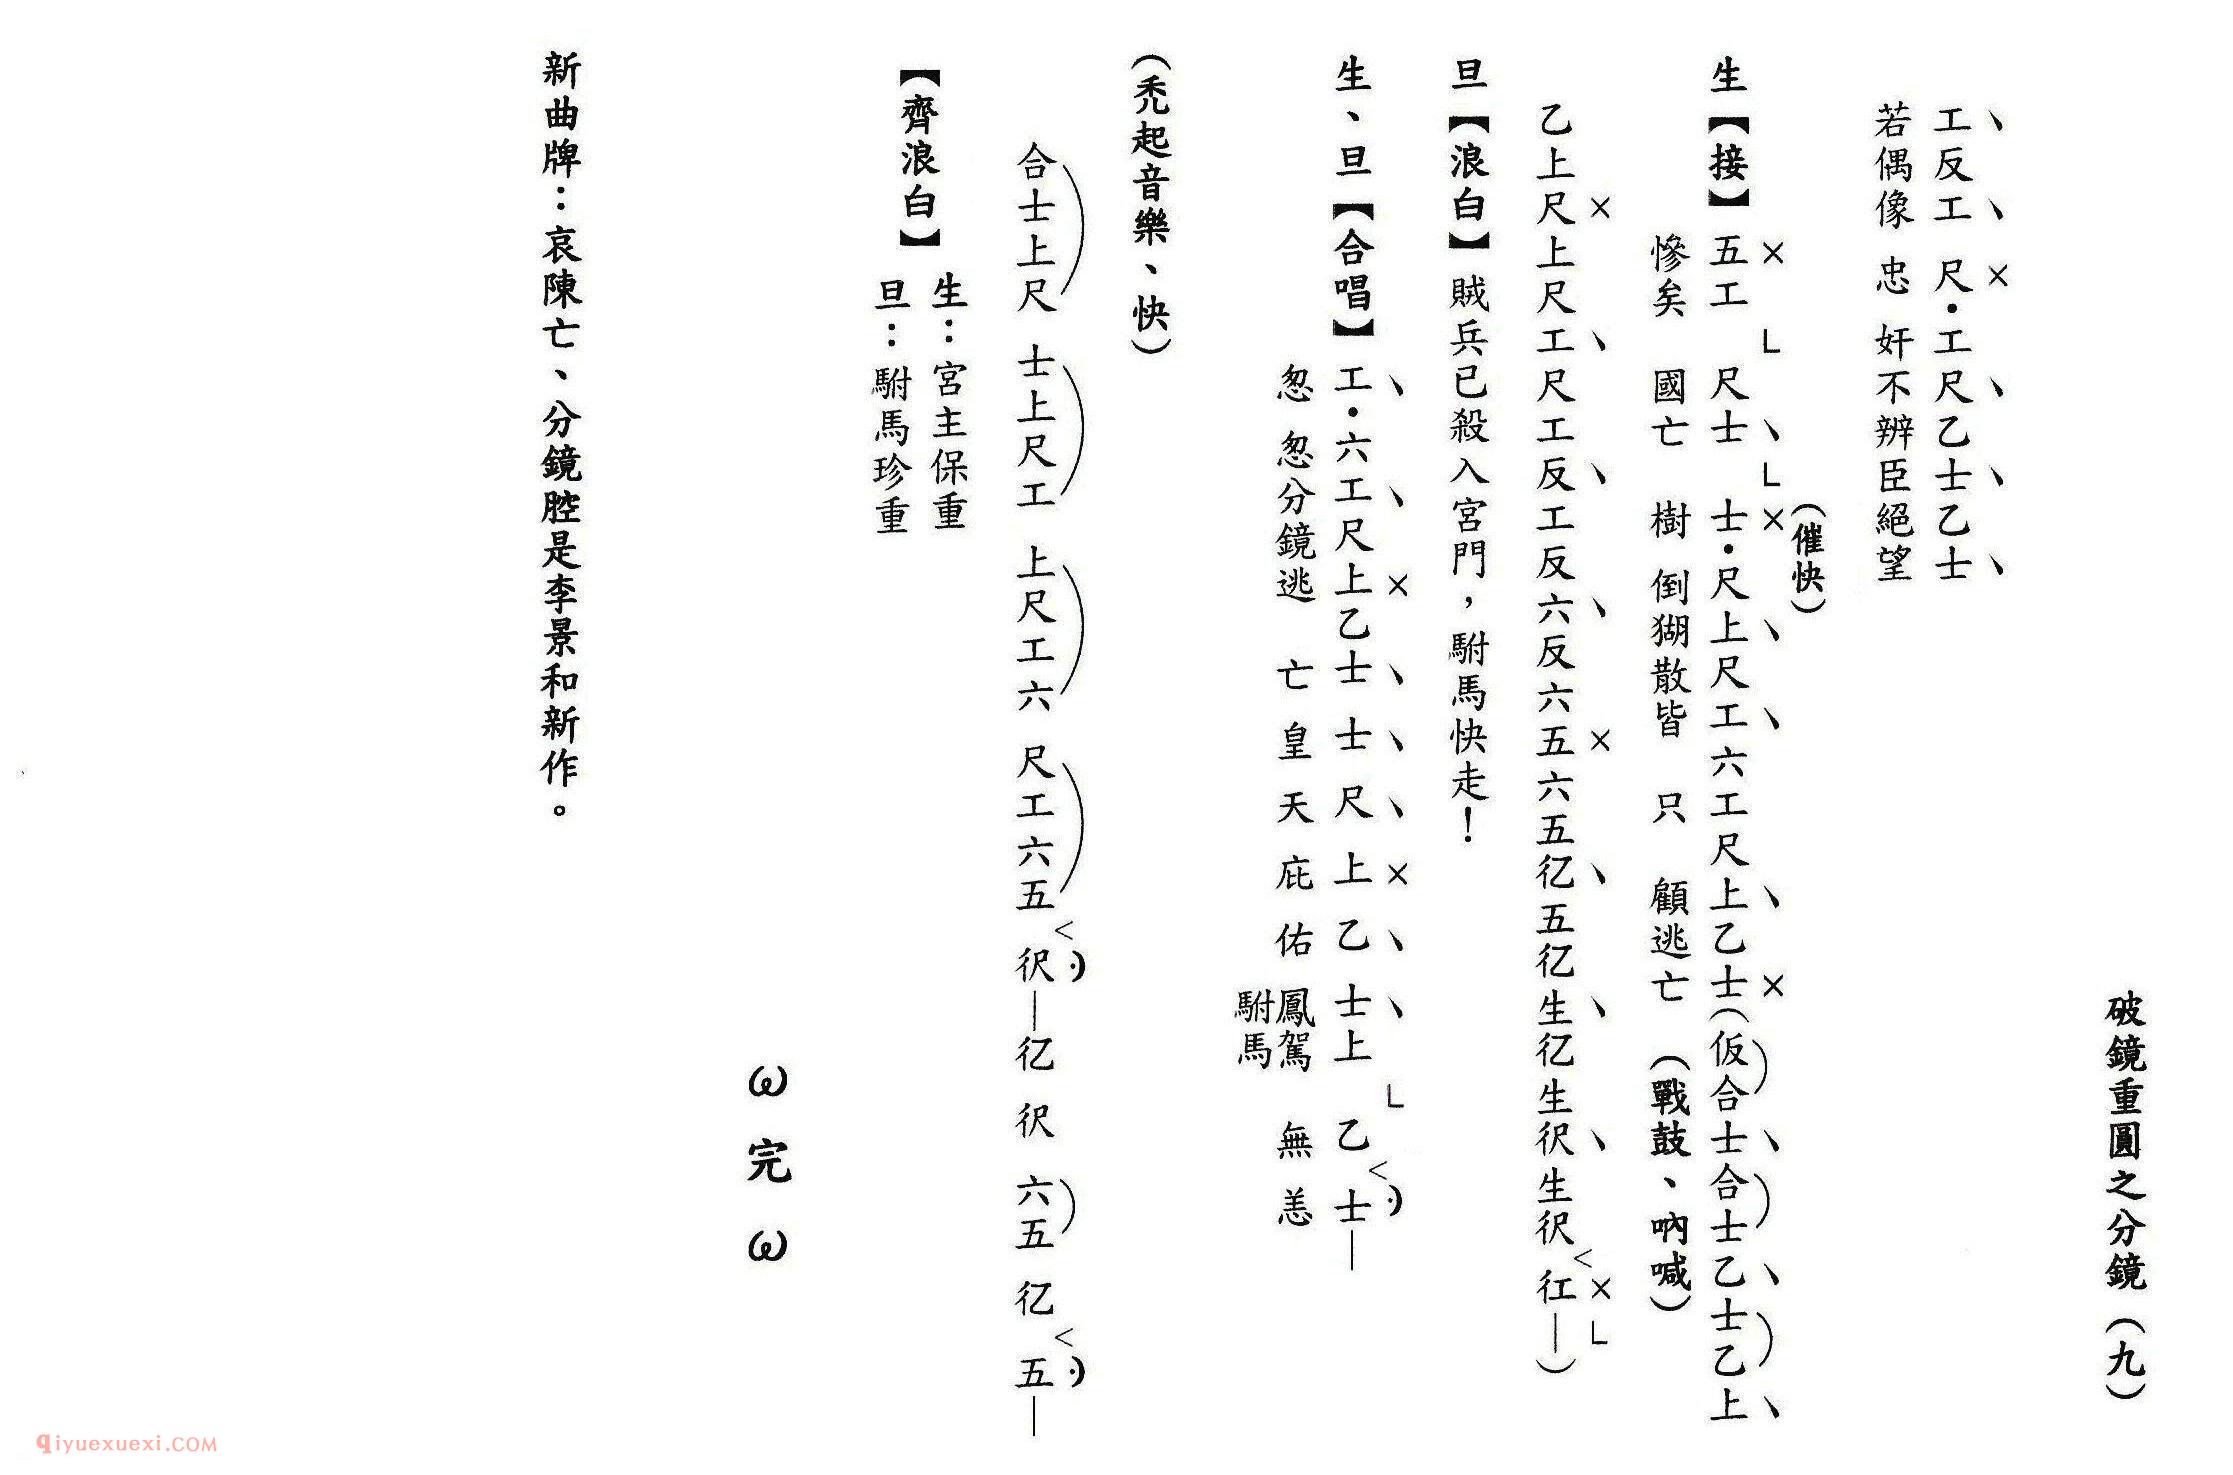 破鏡重圓之分鏡（九）
工反工尺·工尺乙士乙士
若偶像忠奸不辨臣絕望
（催快）
生【接】五工尺士士·尺上尺工六工尺上乙士（仮合士合士乙士乙上
慘矣國亡樹倒猢散皆只顧逃亡（戰鼓、吶喊）
乙上尺上尺工尺工反工反六反六五六五亿五亿生亿生伬生伬仜—）
旦【浪白】賊兵已殺入宮門，駙馬快走！
生、旦【合唱】工·六工尺上乙士士尺上乙士上乙士—
怱怱分鏡逃亡皇天庇佑鳳駕無恙
駙馬
（禿起音樂、快）
合士上尺士上尺工上尺工六尺工六五伬—亿伬六五亿五—
【齊浪白】
生：宮主保重
旦：駙馬珍重
ω完ω
新曲牌：哀陳亡、分鏡腔是李景和新作。
qiyuexuexi.COM